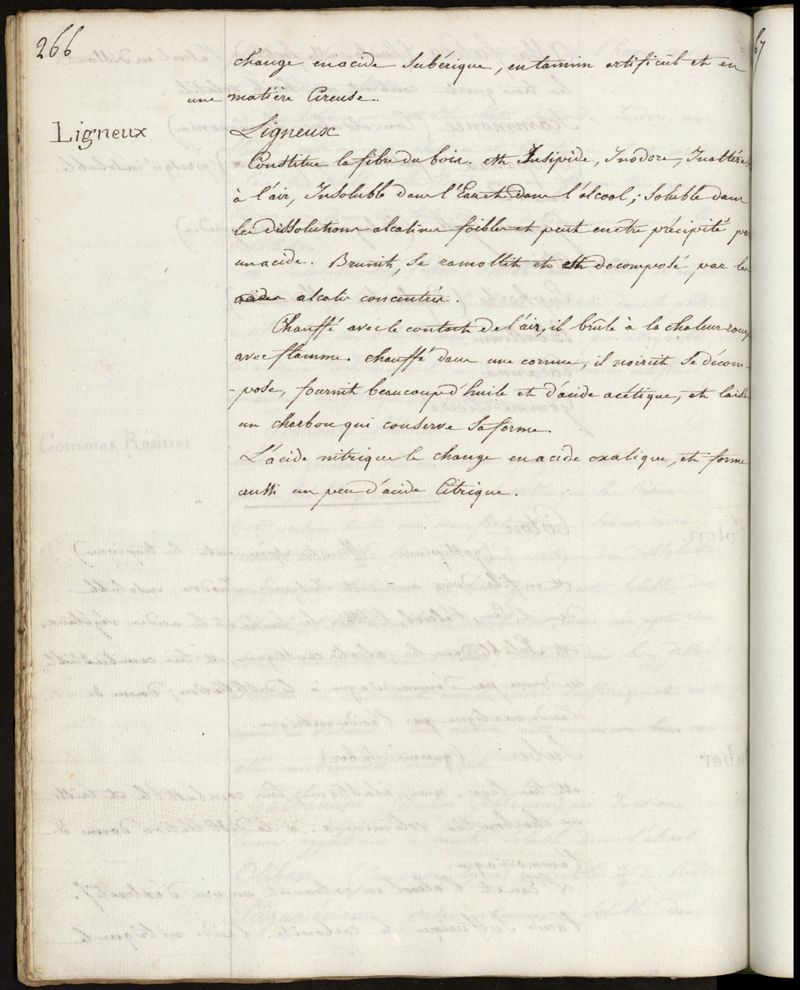 266
change en acide Subérique, en tannin artificiel et en
une matière Cireuse.
Ligneux
Ligneux
Constitue la fibre du bois. est Insipide, Inodore, Inaltéra
à l'air, Insoluble dans l'Eau et dans l'alcool; Soluble dans
les dissolutions alcalines foibles et peut en être précipité par
un acide. Brunit, se ramollit et est decomposé par les
alcalis concentrés.
Chauffé avec le contact de l'air, il brûle à la chaleur rouge
avec flamme. chauffé dans une cornue, il noircit se décom-
-pose, fournit beaucoup d'huile et d'acide acétique, et laisse
un charbon qui conserve sa forme.
L'acide nitrique le change en acide oxalique, et forme
aussi un peu d'acide Citrique.
67